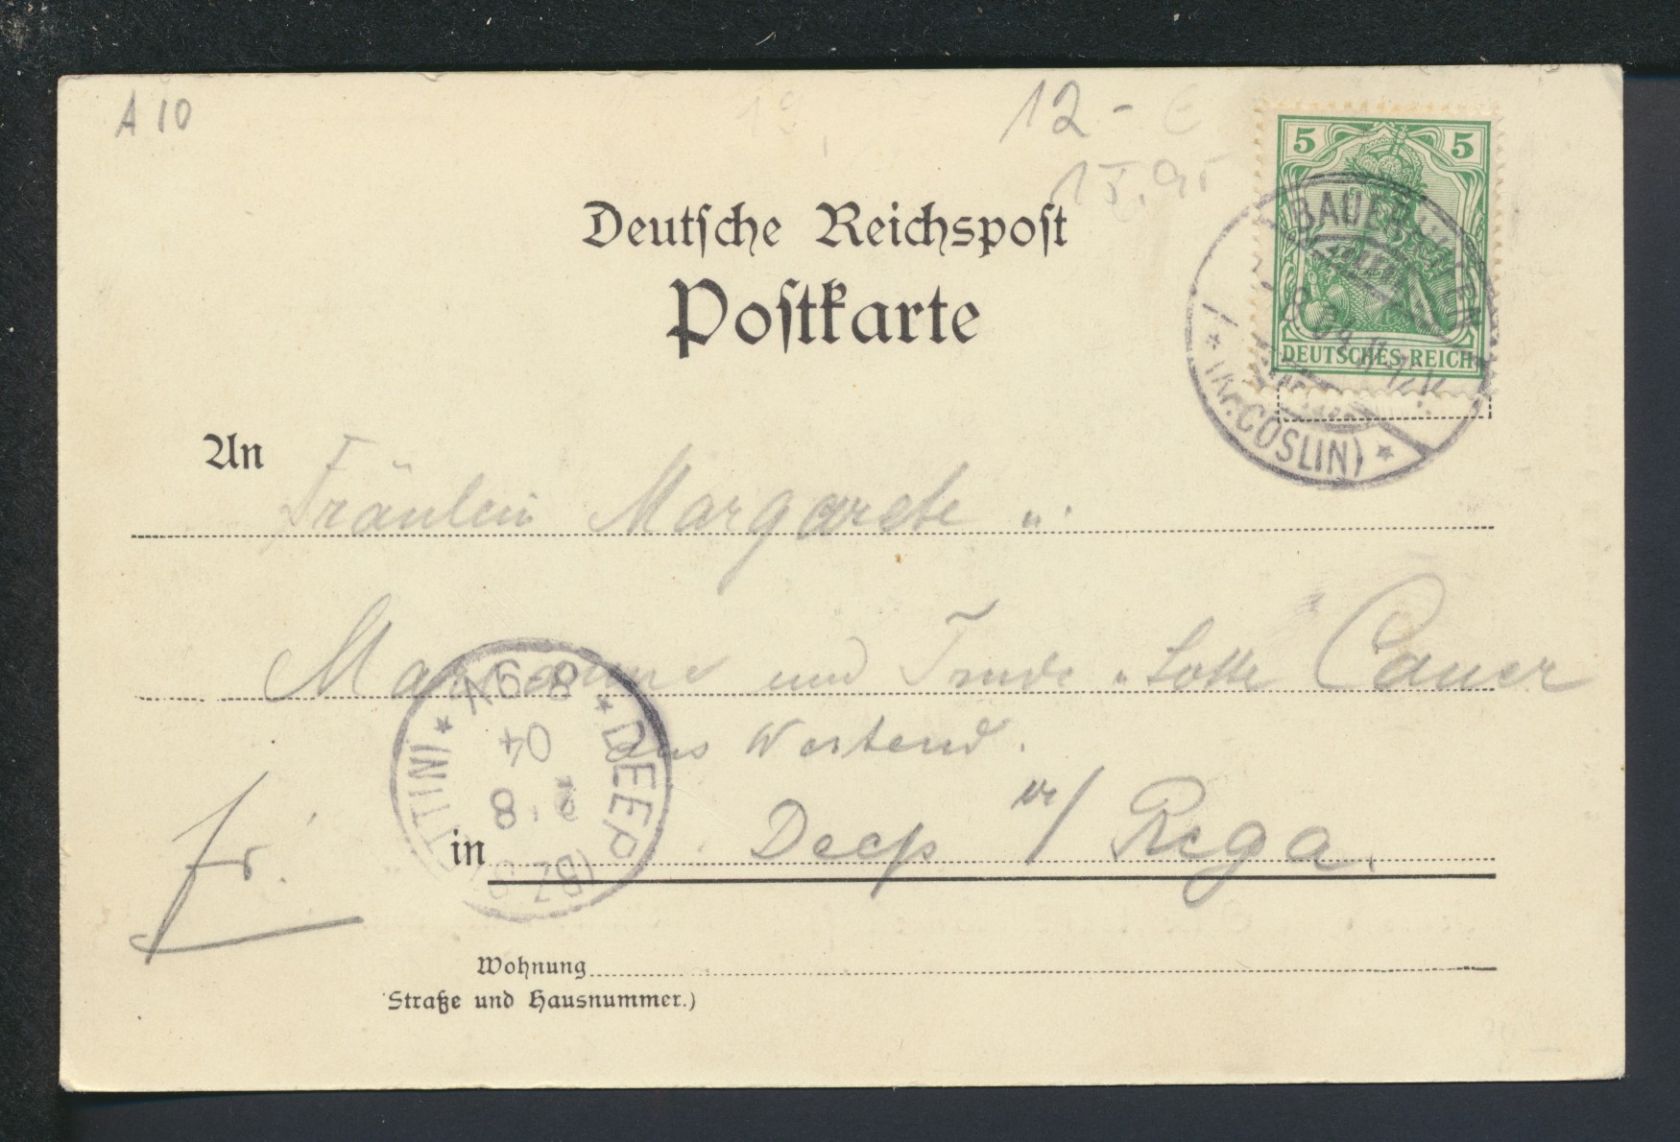 A 10
12 -
Deutsche Reichspost
Postkarte
5 5
DEUTSCHES REICH
BAUERHUFEN
(Kr. CÖSLIN)
An Fräulein Margarete
Marianne und Trude Lotte Cauer
aus Westend.
in Deep a/ Rega.
fr.
DEEP (BZ
8-9V
2 8
04
Wohnung
Straße und Hausnummer.)